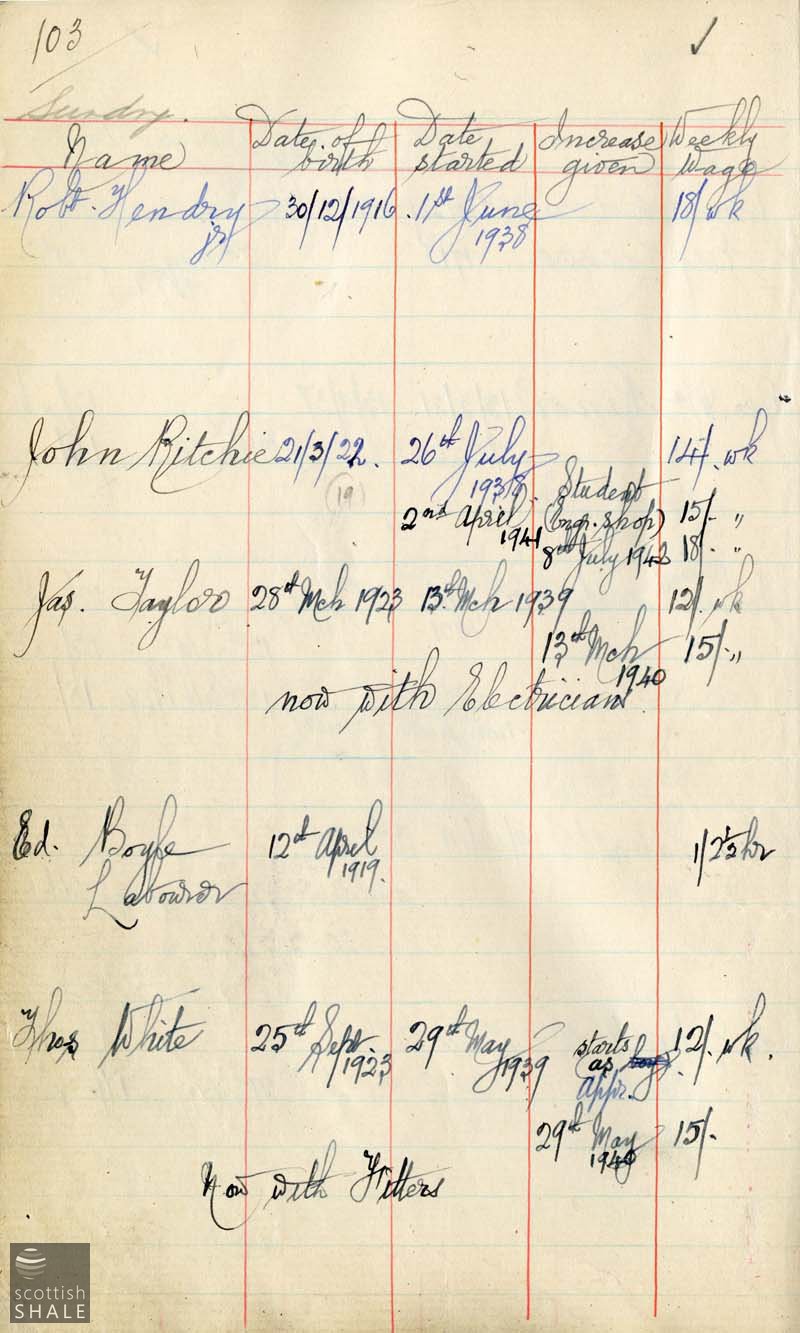 103 ✓
Sundry.
Name Date of birth Date started Increase given Weekly Wage
Robt. Hendry jr 30/12/1916 1st June 1938 18/ wk
John Ritchie 21/3/22. 26th July 1938 14/. wk
(19)
2nd April 1941 Student (Engr. shop) 15/- "
8th July 1942 18/- "
Jas. Taylor 28th Mch 1923 13th Mch 1939 12/. wk
13th Mch 1940 15/- "
now with Electricians.
Ed. Boyle 12th April 1919. 1/2½ hr
Labourer
Thos White 25th Sept. 1923 29th May 1939 starts (as boy) Appr. 12/. wk.
29th May 1940 15/-
Now with Fitters
scottish
SHALE